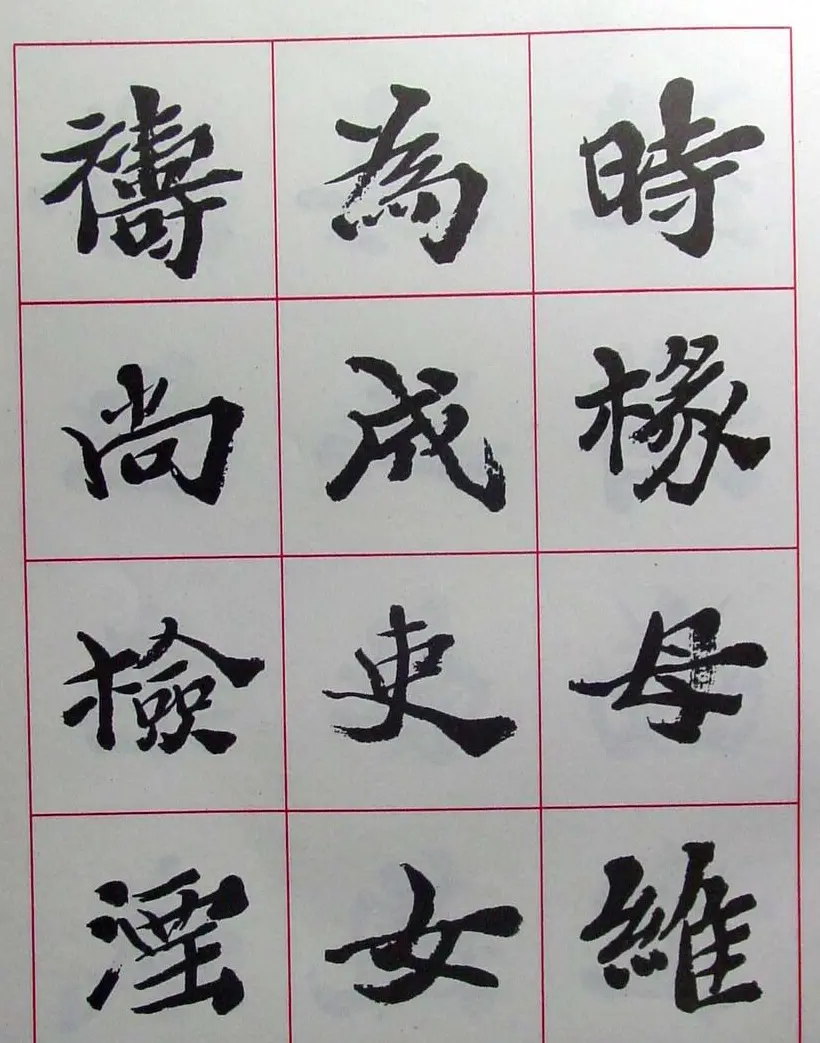 時椽母維
為成吏女
禱尚檢湮